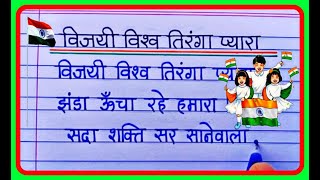 विजयी विश्व तिरंगा प्यारा
विजयी विश्व तिरंगा
झंडा ऊँचा रहे हमारा
सदा शक्ति सर सानेवाला